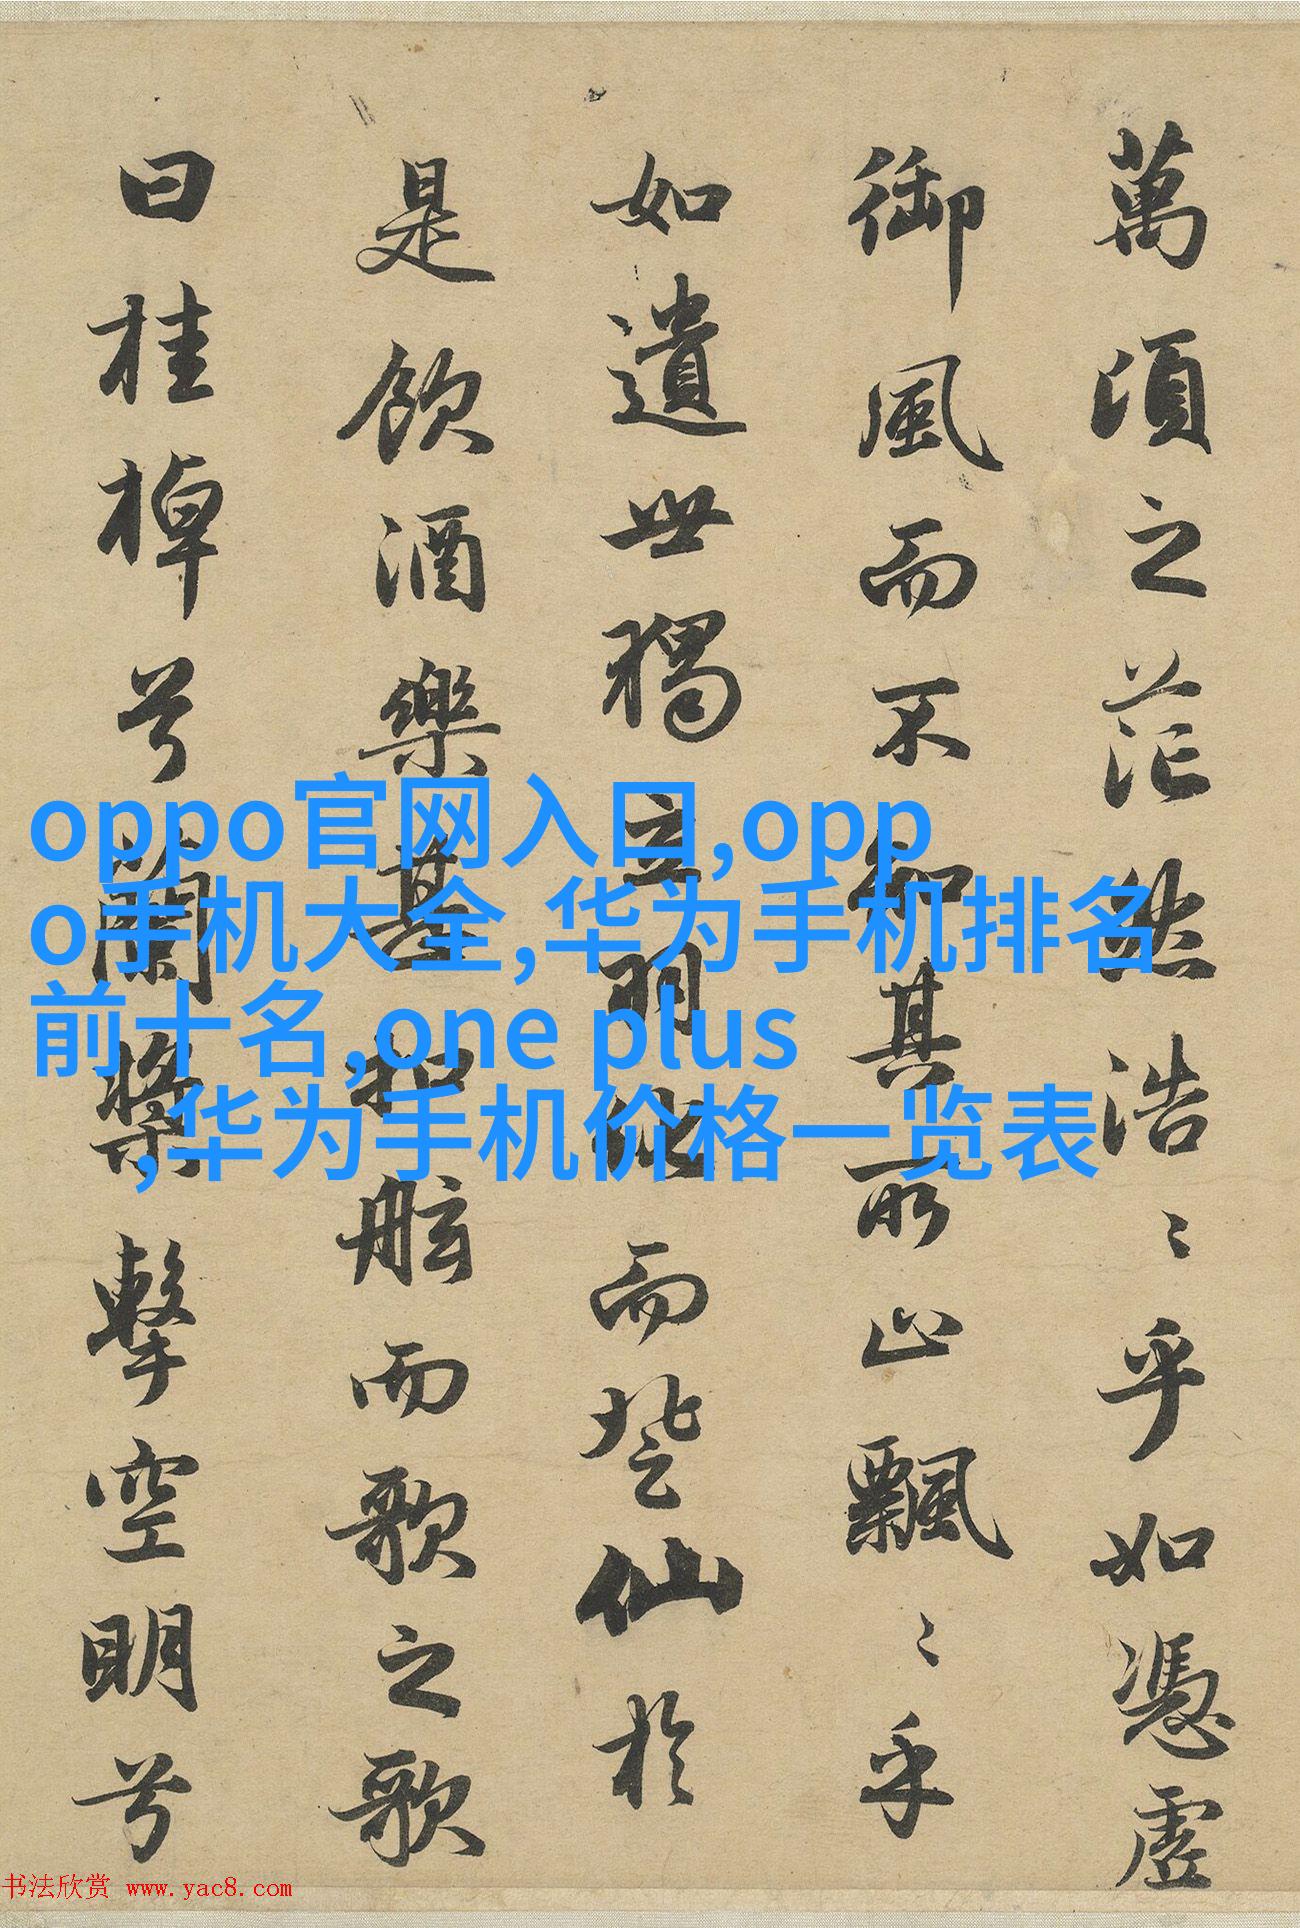 萬頃之茫然浩〻乎如憑虛
御風而不知其所止飄〻乎
如遺世獨立羽化而登仙於
是飲酒樂甚扣舷而歌之歌
曰桂棹兮蘭槳擊空明兮
oppo官网入口,opp
o手机大全,华为手机排名
前十名,one plus
,华为手机价格一览表
书法欣赏 www.yac8.com